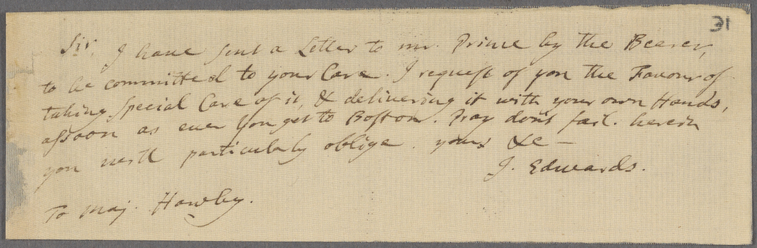 31
Sir. I have sent a Letter to mr. Prince by the Bearer,
to be committed to your Care. I request of you the Favour of
taking special Care of it, & delivering it with your own Hands,
assoon as ever you get to Boston. Pray don't fail. herein
you will particularly oblige. yours &c —
J. Edwards.
To Maj. Hawley.